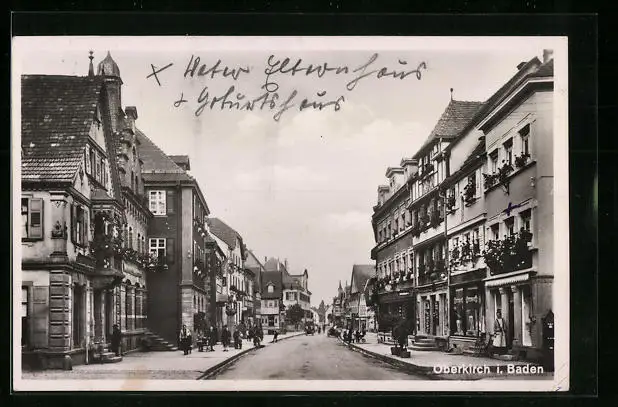 x Vater Elternhaus
+ Geburtshaus
Oberkirch i. Baden